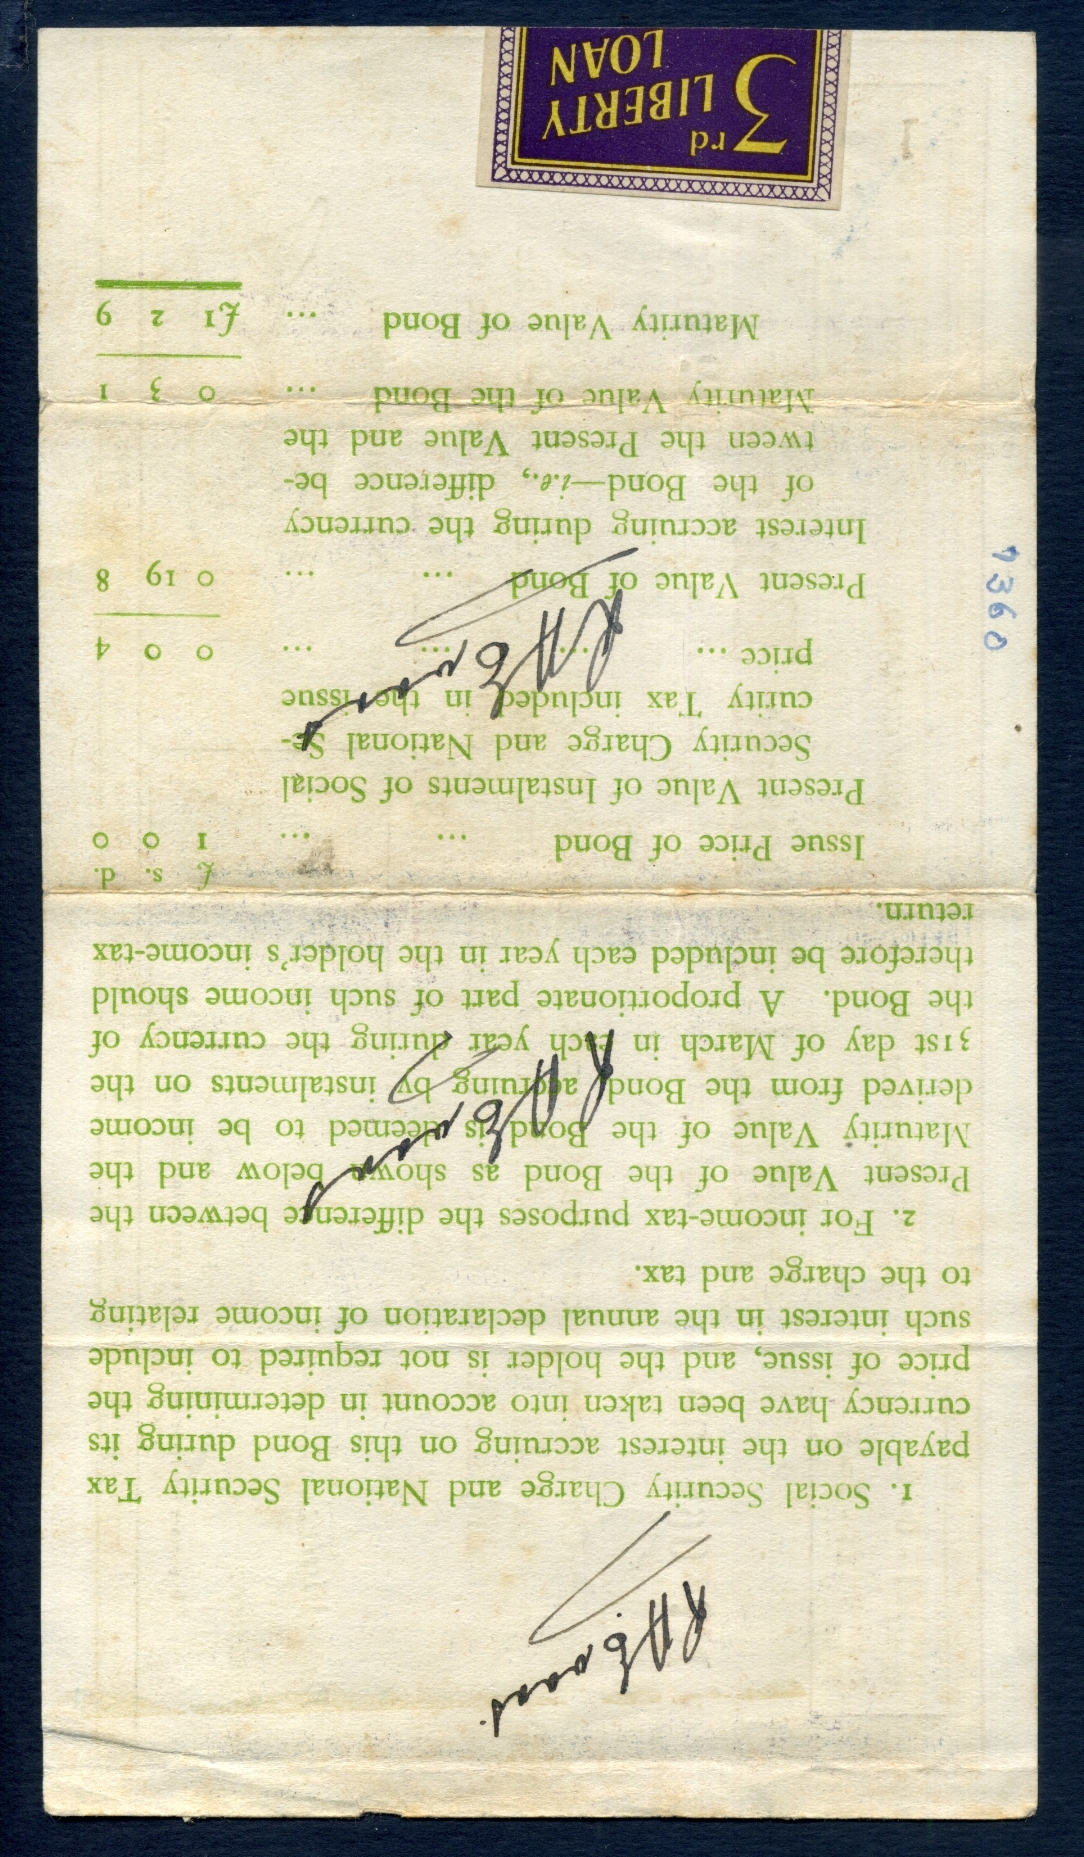 1. Social Security Charge and National Security Tax
payable on the interest accruing on this Bond during its
currency have been taken into account in determining the
price of issue, and the holder is not required to include
such interest in the annual declaration of income relating
to the charge and tax.
2. For income-tax purposes the difference between the
Present Value of the Bond as shown below and the
Maturity Value of the Bond is deemed to be income
derived from the Bond accruing by instalments on the
31st day of March in each year during the currency of
the Bond. A proportionate part of such income should
therefore be included each year in the holder's income-tax
return.
£ s. d.
Issue Price of Bond ... ... 1 0 0
Present Value of Instalments of Social
Security Charge and National Se-
curity Tax included in the issue
price ... ... ... ... 0 0 4
Present Value of Bond ... ... 0 19 8
Interest accruing during the currency
of the Bond—i.e., difference be-
tween the Present Value and the
Maturity Value of the Bond ... 0 3 1
Maturity Value of Bond ... £1 2 9
R H Evans
R H Evans
R H Evans
9360
3rd LIBERTY
LOAN